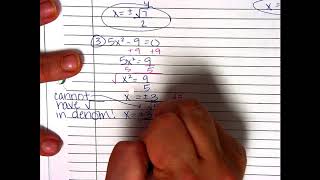 4
x = ± √7
2
③ 5x² - 9 = 0
+9 +9
5x² = 9
5 5
√x² = 9
5
cannot
have √
in denom!
x = ± 3
x = ± 3
x =